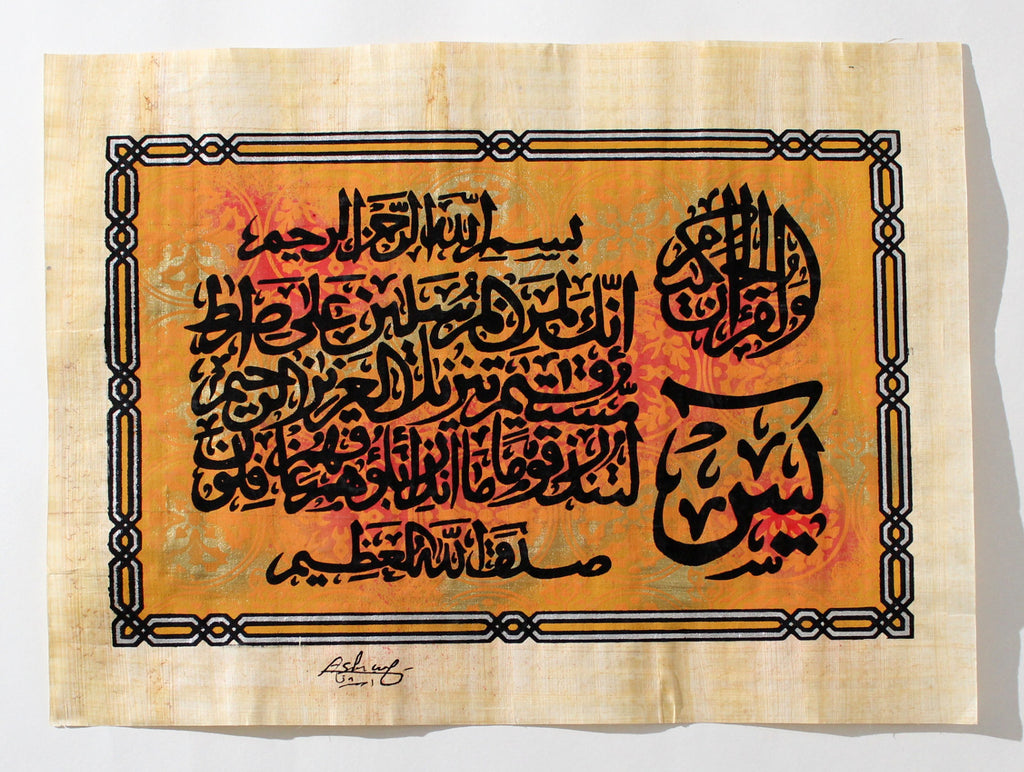 بسم الله الرحمن الرحيم
يس
والقرآن الحكيم
إنك لمن المرسلين على صراط
مستقيم تنزيل العزيز الرحيم
لتنذر قوما ما أنذر آباؤهم فهم غافلون
صدق الله العظيم
Ashraf